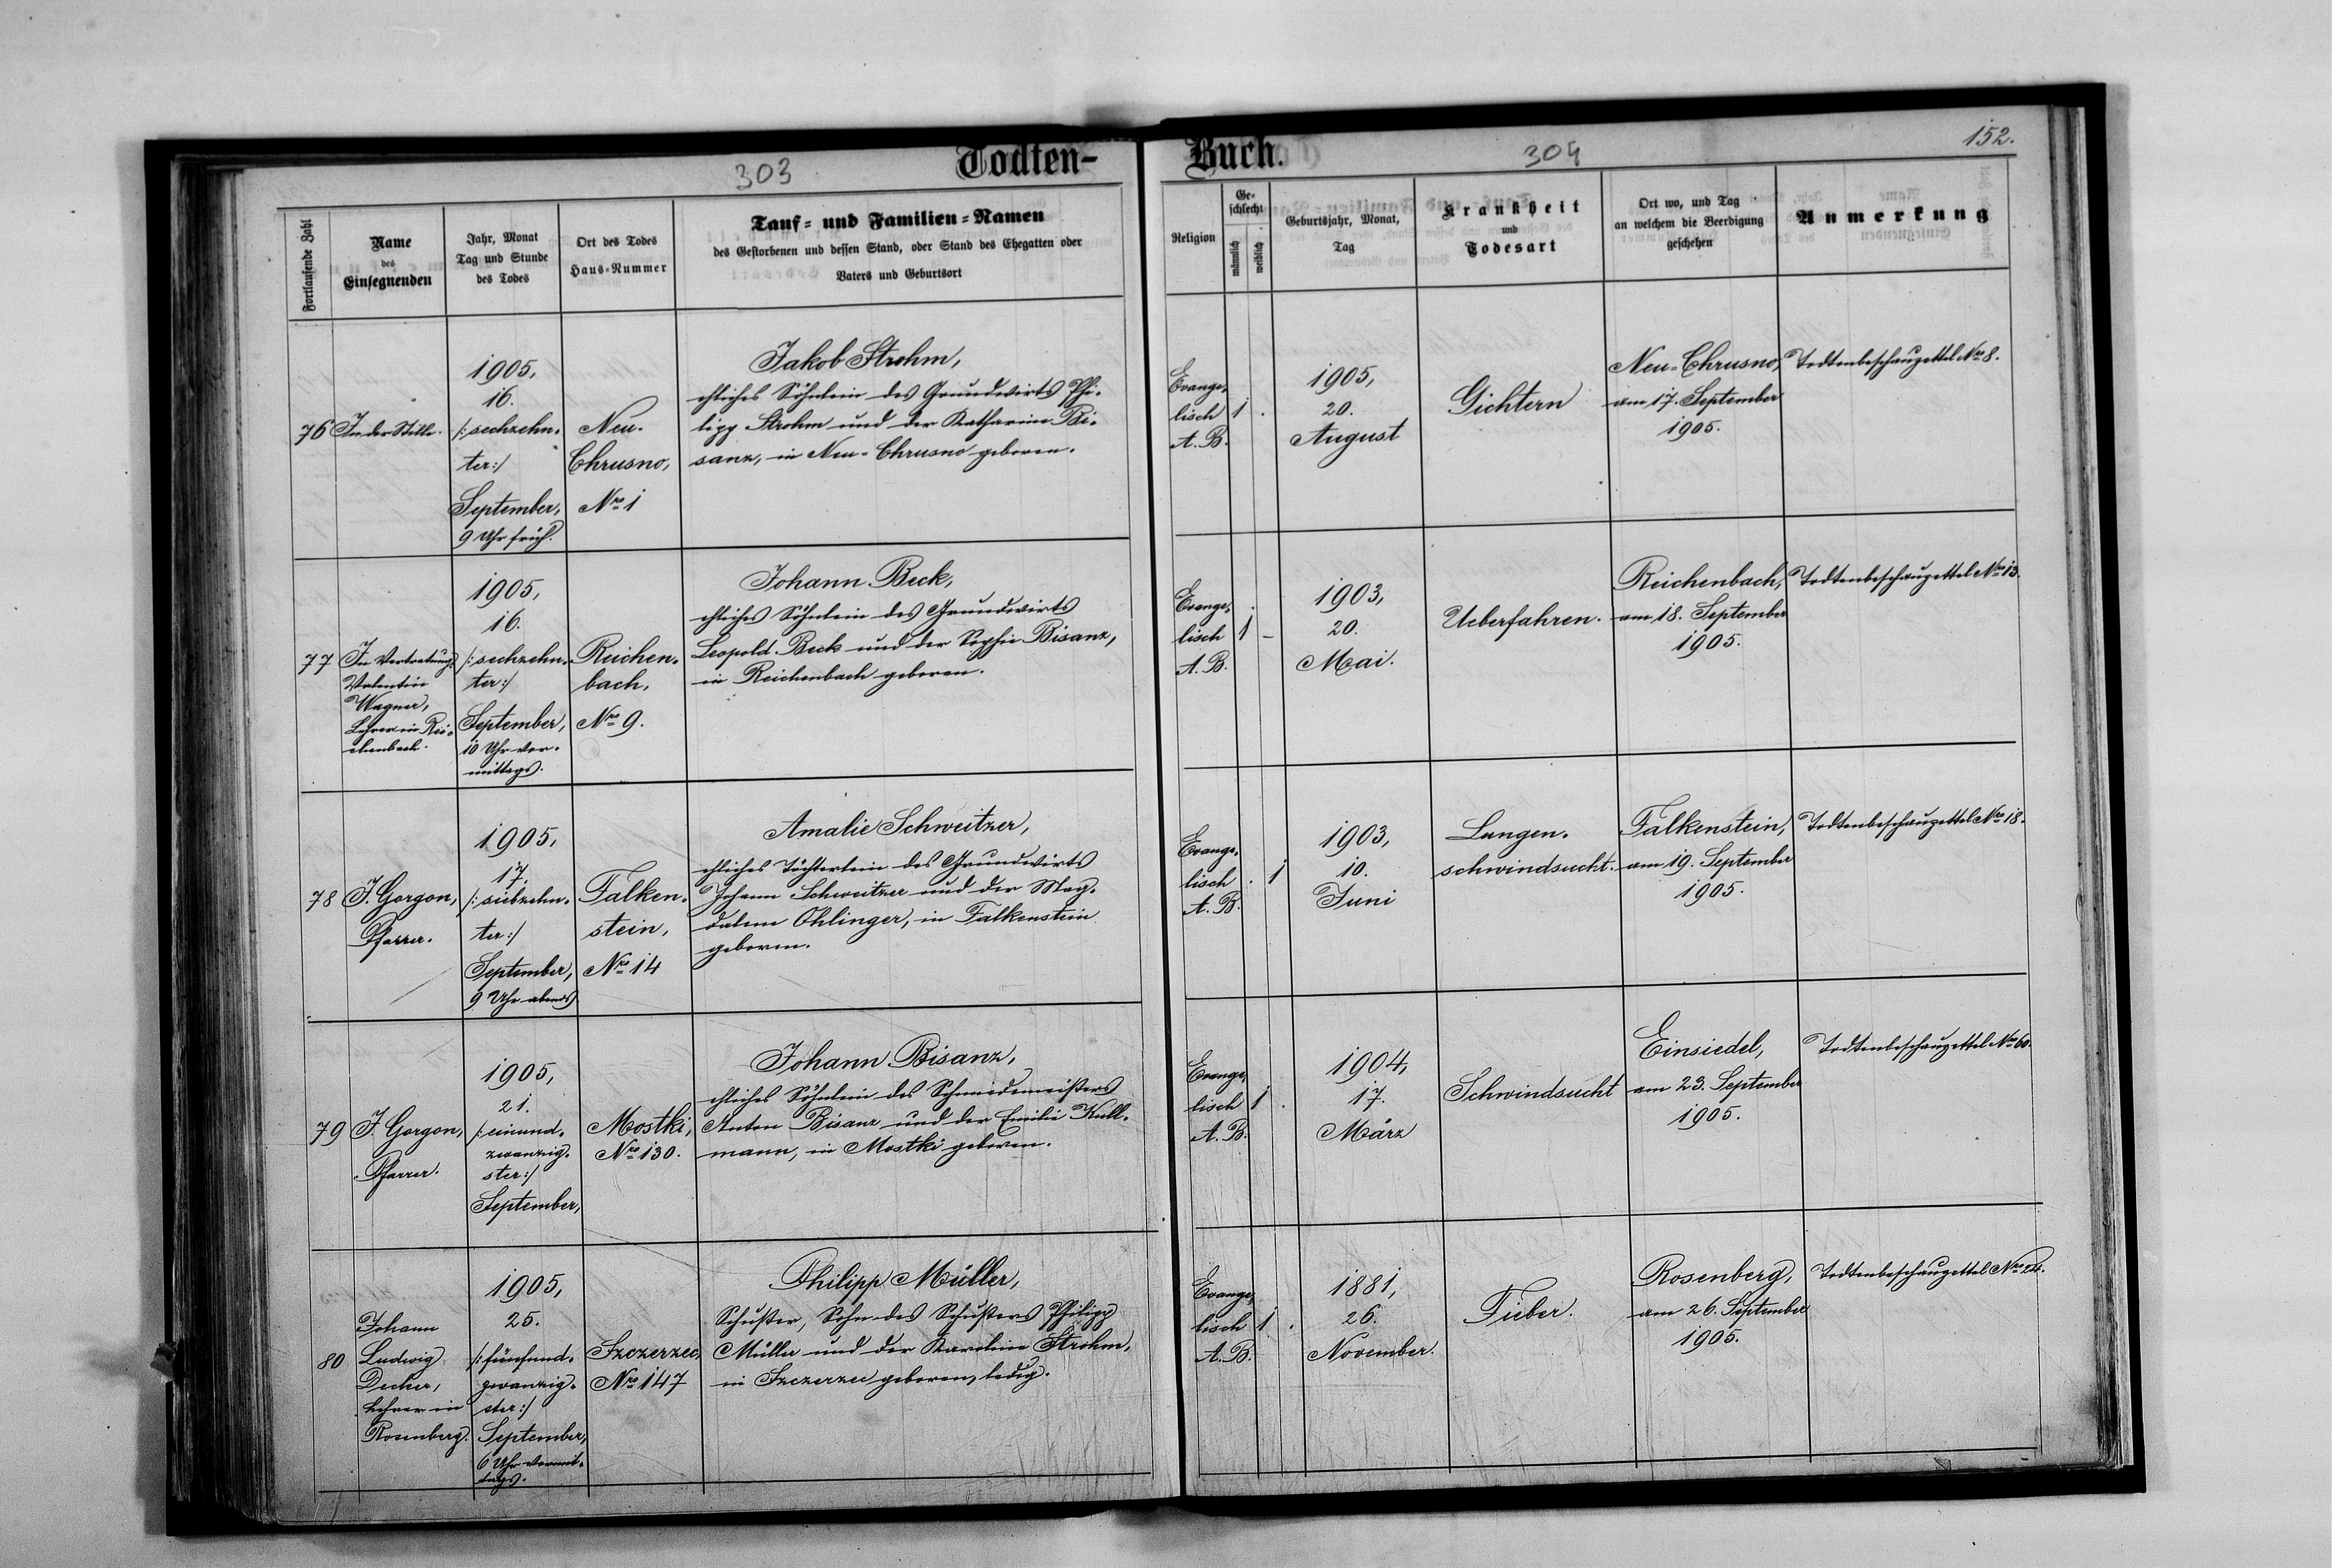 303
Todten-
Buch.
304
152.
Fortlaufende Zahl
Name
des
Einsegnenden
Jahr, Monat
Tag und Stunde
des Todes
Ort des Todes
Haus-Nummer
Tauf- und Familien-Namen
des Gestorbenen und dessen Stand, oder Stand des Ehegatten oder
Vaters und Geburtsort
Religion
Ge-
schlecht
männlich
weiblich
Geburtsjahr, Monat,
Tag
Krankheit
und
Todesart
Ort wo, und Tag
an welchem die Beerdigung
geschehen
Anmerkung
76
In der Stille.
1905,
16.
/:sechzehn-
ter:/
September,
9 Uhr früh.
Neu-
Chrusno,
Nro 1
Jakob Strohm,
eheliches Söhnlein des Grundwirts Phi-
lipp Strohm und der Katharina Bi-
sanz, in Neu-Chrusno geboren.
Evange-
lisch
A. B.
1
.
1905,
20.
August
Gichtern
Neu-Chrusno,
am 17. September
1905.
Todtenbeschauzettel Nro 8.
77
In Vertretung:
Valentin
Wagner,
Lehrer in Rei-
chenbach.
1905,
16.
/:sechzehn-
ter:/
September,
10 Uhr vor-
mittags.
Reichen-
bach,
Nro 9.
Johann Beck,
eheliches Söhnlein des Grundwirts
Leopold Beck und der Sophie Bisanz,
in Reichenbach geboren.
Evange-
lisch
A. B.
1
-
1903,
20.
Mai.
Ueberfahren.
Reichenbach,
am 18. September
1905.
Todtenbeschauzettel Nro 13.
78
J. Gorgon,
Pfarrer.
1905,
17.
/:siebzehn-
ter:/
September,
9 Uhr abends
Falken-
stein,
Nro 14
Amalie Schweitzer,
eheliches Töchterlein des Grundwirts
Johann Schweitzer und der Mag-
dalena Ohlinger, in Falkenstein
geboren.
Evange-
lisch
A. B.
.
1
1903,
10.
Juni
Lungen-
schwindsucht.
Falkenstein,
am 19. September
1905.
Todtenbeschauzettel Nro 18.
79
J. Gorgon,
Pfarrer.
1905,
21.
/:einund-
zwanzig-
ster:/
September,
Mostki,
Nro 130.
Johann Bisanz,
eheliches Söhnlein des Schmiedemeisters
Anton Bisanz und der Emilie Kull-
mann, in Mostki geboren.
Evange-
lisch
A. B.
1
.
1904,
17.
März
Schwindsucht
Einsiedel,
am 23. September
1905.
Todtenbeschauzettel Nro 60.
80
Johann
Ludwig
Decker,
Lehrer in
Rosenberg.
1905,
25.
/:fünfund-
zwanzig-
ster:/
September,
6 Uhr vormit-
tags.
Szczerzec,
Nro 147
Philipp Müller,
Schuster, Sohn des Schusters Philipp
Müller und der Karoline Strohm,
in Szczerzec geboren, ledig.
Evange-
lisch
A. B.
1
.
1881,
26.
November.
Fieber.
Rosenberg,
am 26. September
1905.
Todtenbeschauzettel Nro